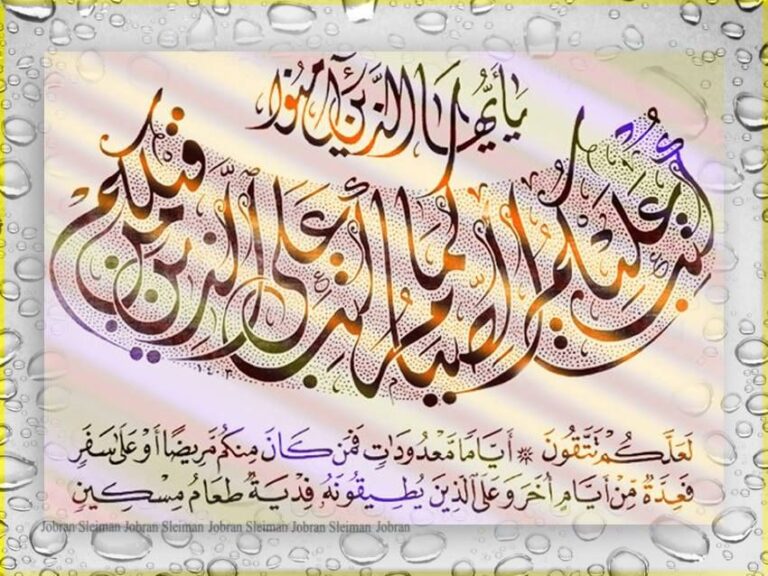 يَا أَيُّهَا الَّذِينَ آمَنُوا
كُتِبَ عَلَيْكُمُ الصِّيَامُ كَمَا كُتِبَ عَلَى الَّذِينَ مِن قَبْلِكُمْ
١٤٠٣
لَعَلَّكُمْ تَتَّقُونَ ❋ أَيَّامًا مَّعْدُودَاتٍ فَمَن كَانَ مِنكُم مَّرِيضًا أَوْ عَلَىٰ سَفَرٍ
فَعِدَّةٌ مِّنْ أَيَّامٍ أُخَرَ وَعَلَى الَّذِينَ يُطِيقُونَهُ فِدْيَةٌ طَعَامُ مِسْكِينٍ
Jobran Sleiman Jobran Sleiman Jobran Sleiman Jobran Sleiman Jobran